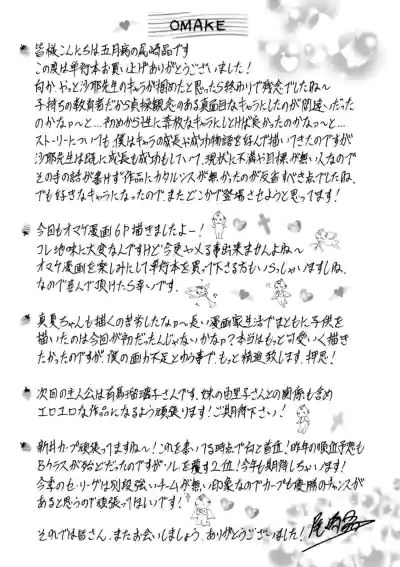 OMAKE
皆様こんにちは五月病の尾崎晶です
この度は単行本お買い上げありがとうございました!
何か、やっと沙耶先生のキャラが掴めたと思ったら終わりで残念でしたね〜
子持ちの教育者だから貞操観念のある真面目なキャラにしたのが間違いだった
のかなァ〜と…初めから性に奔放なキャラにしとけば良かったのかなァ〜と…
ストーリーについても僕はキャラの成長や成功物語を好んで描いてきたのですが
沙耶先生は既に成長も成功もしていて、現状に不満や目標が無い人なので
その手の話が書けず作品にカタルシスが無かったのが反省すべき点でしたね、
でも好きなキャラになったので、またどこかで登場させようと思ってます!
今回もオマケ漫画6P描きましたよー!
コレ地味に大変なんですけど今更やめる事出来ませんよね〜
オマケ漫画を楽しみにして単行本を買って下さる方もいらっしゃいますしね、
なので喜んで頂けたら幸いです、
真夏ちゃんも描くの苦労したなァ〜長い漫画家生活でまともに子供を
描いたのは今回が初だったんじゃないかなァ?本当はもっと可愛いく描き
たかったのですが、僕の画力不足とゆう事で、もっと精進致します、押忍!
次回の主人公は有馬瑠璃子さんです、妹の百里子さんとの関係も含め
エロエロな作品になるよう頑張ります!ご期待下さい!
新井カープ頑張ってますね〜!これを書いてる時点で何と首位!昨年の順位予想も
Bクラスが殆どだったのですが、ソレを覆す2位!今年も期待しちゃいます!
今季のセ・リーグは別段強いチームが無い印象なのでカープも優勝のチャンスが
あると思うので頑張ってほしいです!
それでは皆さん、またお会いしましょう、ありがとうございました!
尾崎晶